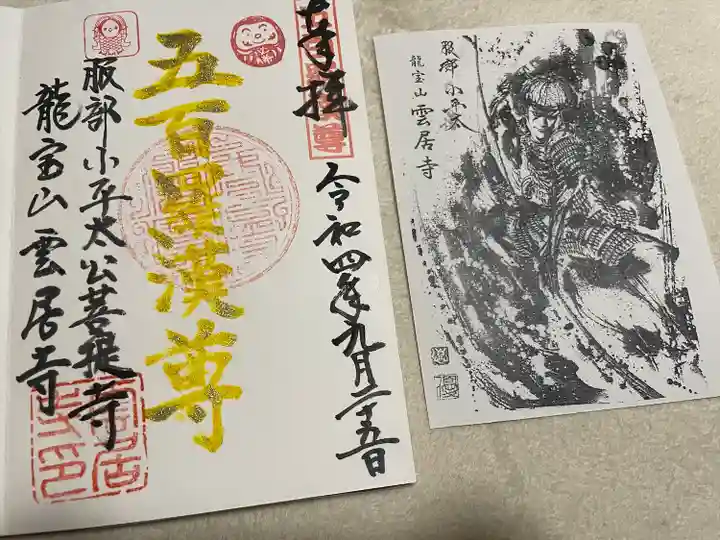 奉拝
令和四年九月二十五日
五百羅漢尊
服部小平太公菩提寺
龍宝山雲居寺
服部小平太
龍宝山雲居寺